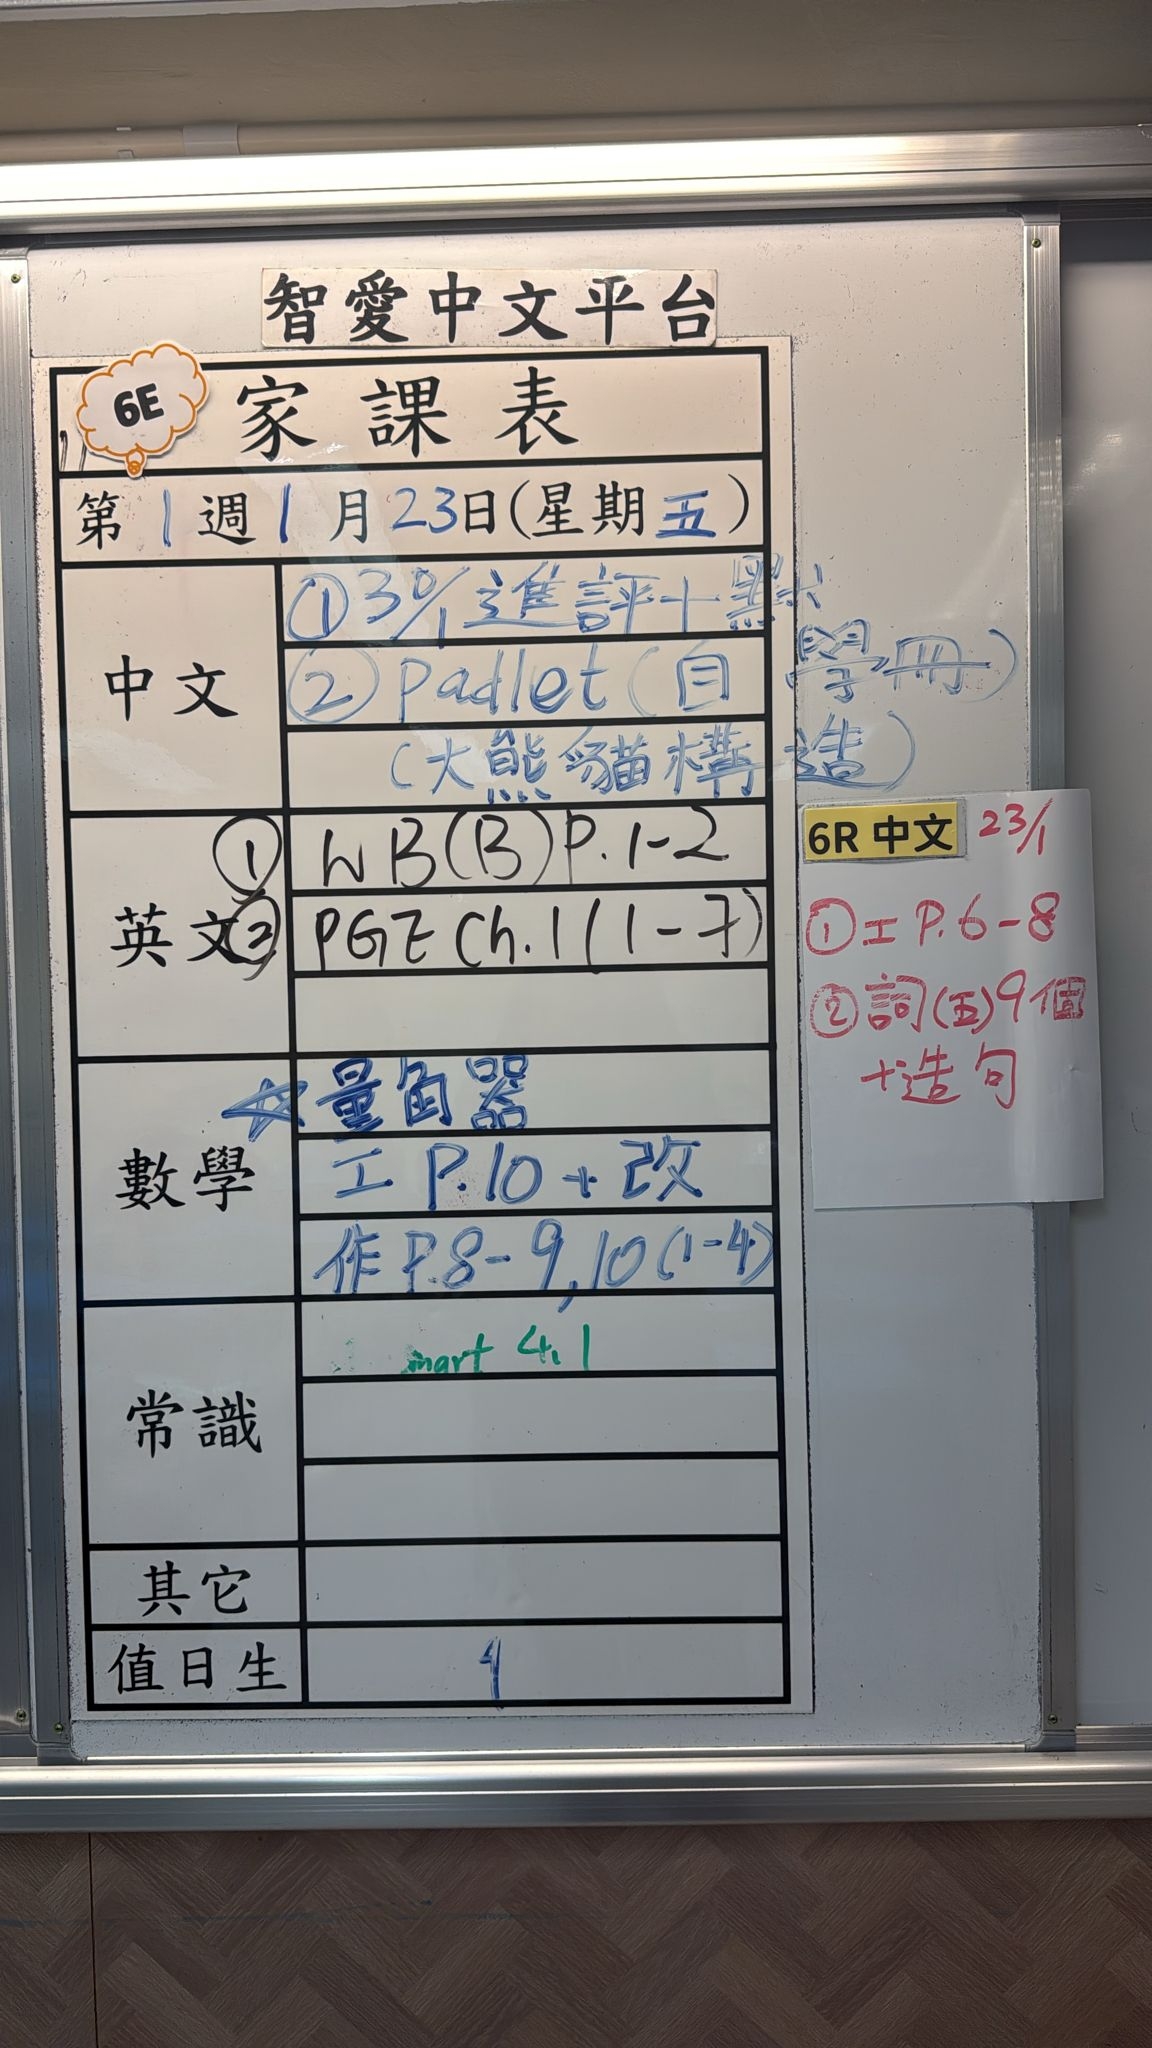 智愛中文平台
6E
家課表
第1週1月23日(星期五)
中文
①30/1進評+默
②Padlet(自學冊)
(大熊貓構造)
英文
①WB(B)P.1-2
②PGE Ch.1(1-7)
數學
☆量角器
工P.10+改
作P.8-9,10(1-4)
常識
mart 4.1
其它
值日生
6R 中文 23/1
①工P.6-8
②詞(五)9個
+造句